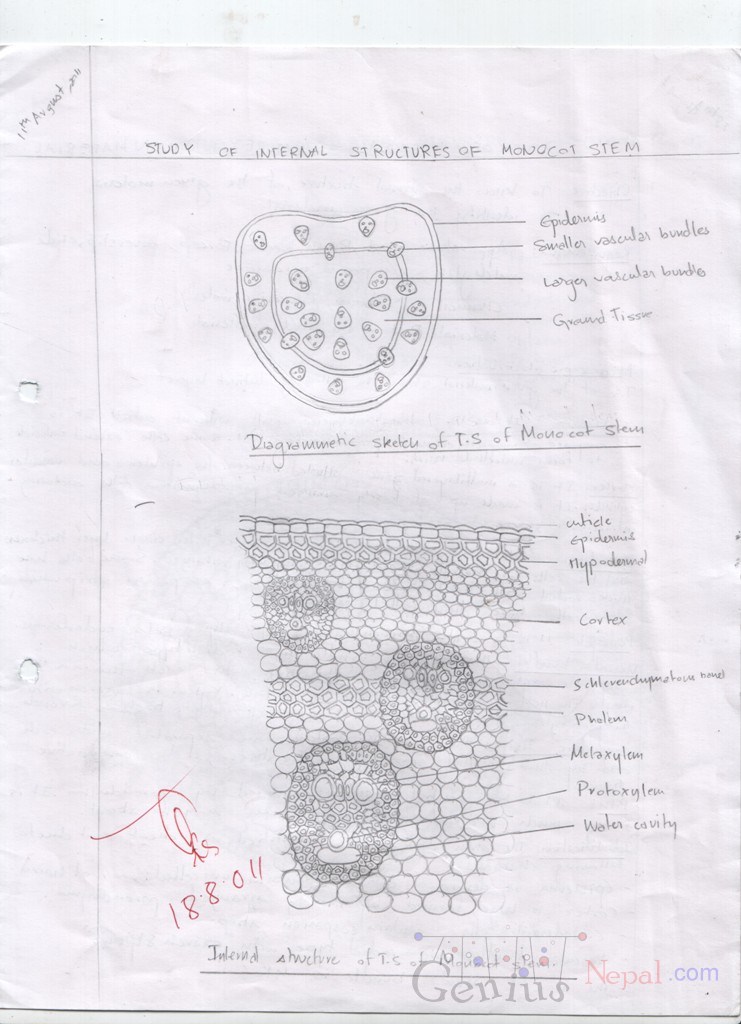 11th August 2011
STUDY OF INTERNAL STRUCTURES OF MONOCOT STEM
Epidermis
Smaller vascular bundles
Larger vascular bundles
Ground Tissue
Diagrammetic sketch of T.S of Monocot stem
cuticle
Epidermis
Hypodermal
Cortex
Schlerenchymatous band
Pholem
Metaxylem
Protoxylem
Water cavity
18.8.011
Internal structure of T.S of Monocot stem.
Genius Nepal.com